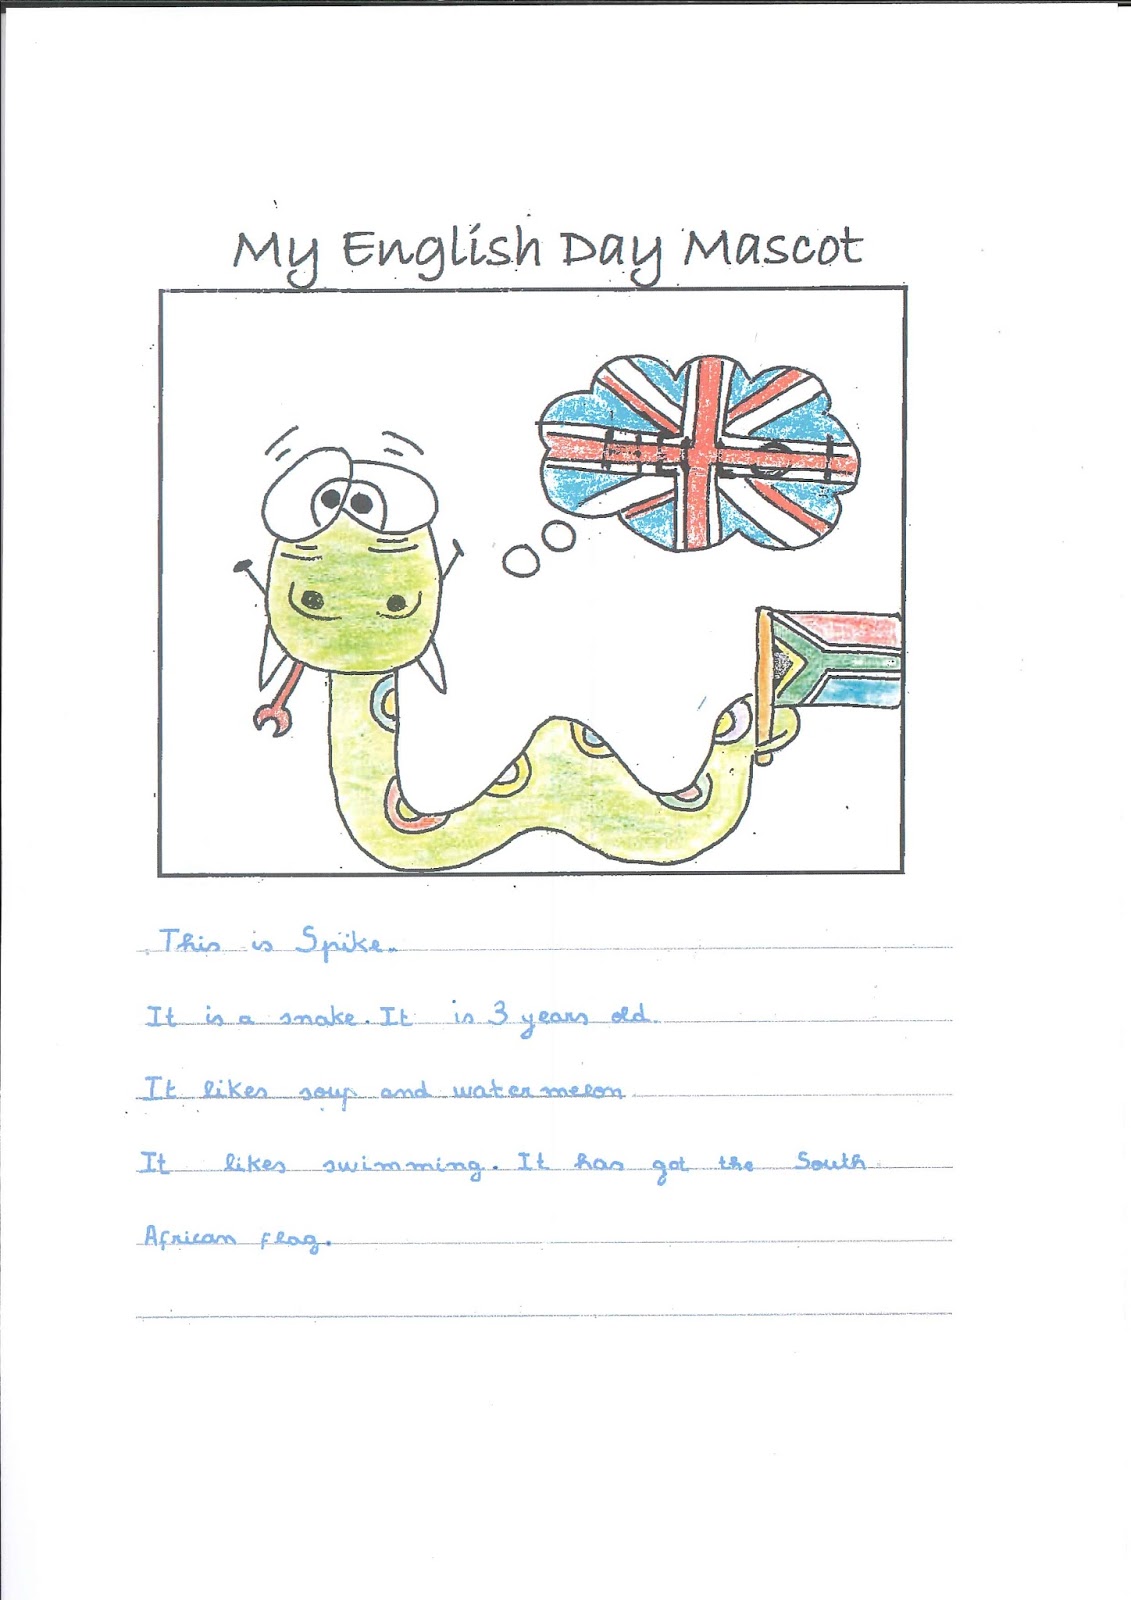 My English Day Mascot
This is Spike.
It is a snake. It is 3 years old.
It likes soup and watermelon
It likes swimming. It has got the South
African flag.